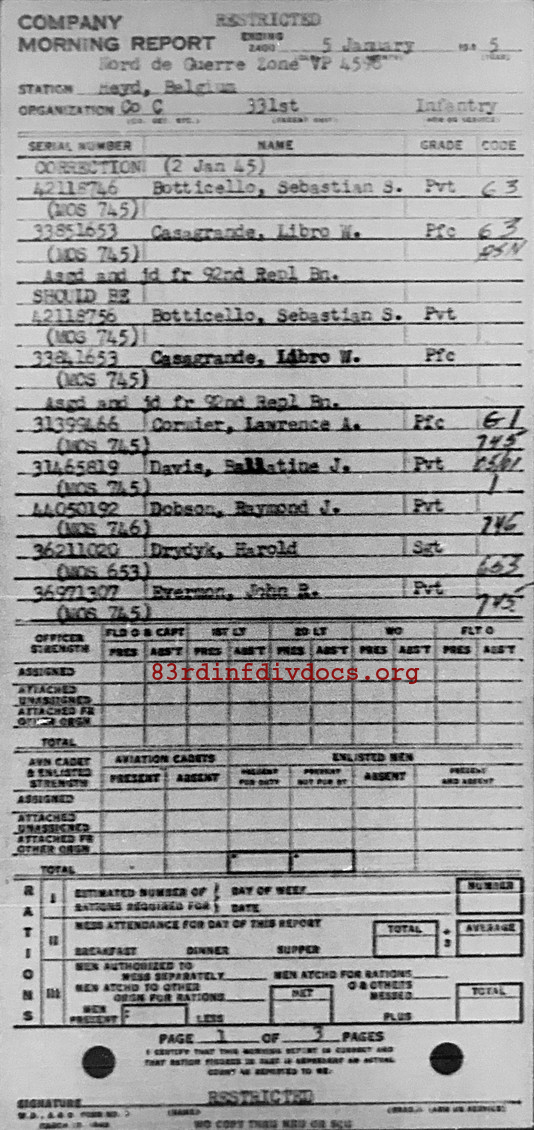 COMPANY RESTRICTED
MORNING REPORT ENDING 2400 5 January 194 5
Nord de Guerre Zone VP 4598
STATION Heyd, Belgium
ORGANIZATION Co C 331st Infantry
SERIAL NUMBER NAME GRADE CODE
CORRECTION (2 Jan 45)
42118746 Botticello, Sebastian S. Pvt G 3
(MOS 745)
33851653 Casagrande, Libro W. Pfc G 3
(MOS 745)
Asgd and jd fr 92nd Repl Bn.
SHOULD BE
42118756 Botticello, Sebastian S. Pvt
(MOS 745)
33841653 Casagrande, Libro W. Pfc
(MOS 745)
Asgd and jd fr 92nd Repl Bn.
31399466 Cormier, Lawrence A. Pfc G 1
(MOS 745) 745
31465819 Davis, Ballatine J. Pvt
(MOS 745) 1
44050192 Dobson, Raymond J. Pvt
(MOS 746) 746
36211020 Drydyk, Harold Sgt
(MOS 653) 653
36971307 Evermon, John R. Pvt
(MOS 745) 745
OFFICER STRENGTH FLD O & CAPT 1ST LT 2D LT WO FLT O
PRES ABS'T PRES ABS'T PRES ABS'T PRES ABS'T PRES ABS'T
ASSIGNED
83rdinfdivdocs.org
ATTACHED UNASSIGNED
ATTACHED FR OTHER ORGN
TOTAL
AVN CADET & ENLISTED STRENGTH AVIATION CADETS ENLISTED MEN
PRESENT ABSENT PRESENT FOR DUTY PRESENT NOT FOR DY ABSENT PRESENT AND ABSENT
ASSIGNED
ATTACHED UNASSIGNED
ATTACHED FR OTHER ORGN
TOTAL
RATIONS
I ESTIMATED NUMBER OF RATIONS REQUIRED FOR DAY OF WEEK DATE NUMBER
II MESS ATTENDANCE FOR DAY OF THIS REPORT TOTAL ÷ 3 AVERAGE
BREAKFAST DINNER SUPPER
III MEN AUTHORIZED TO MESS SEPARATELY MEN ATCHD FOR RATIONS
MEN ATCHD TO OTHER ORGN FOR RATIONS NET O & OTHERS MESSED TOTAL
MEN PRESENT LESS PLUS
PAGE 1 OF 3 PAGES
I CERTIFY THAT THIS MORNING REPORT IS CORRECT AND
THAT RATION FIGURES IN PART III REPRESENT AN ACTUAL
COUNT AS REPORTED TO ME.
RESTRICTED
SIGNATURE
W.D., A.G.O. FORM NO. (NAME) (GRADE) (ARM OR SERVICE)